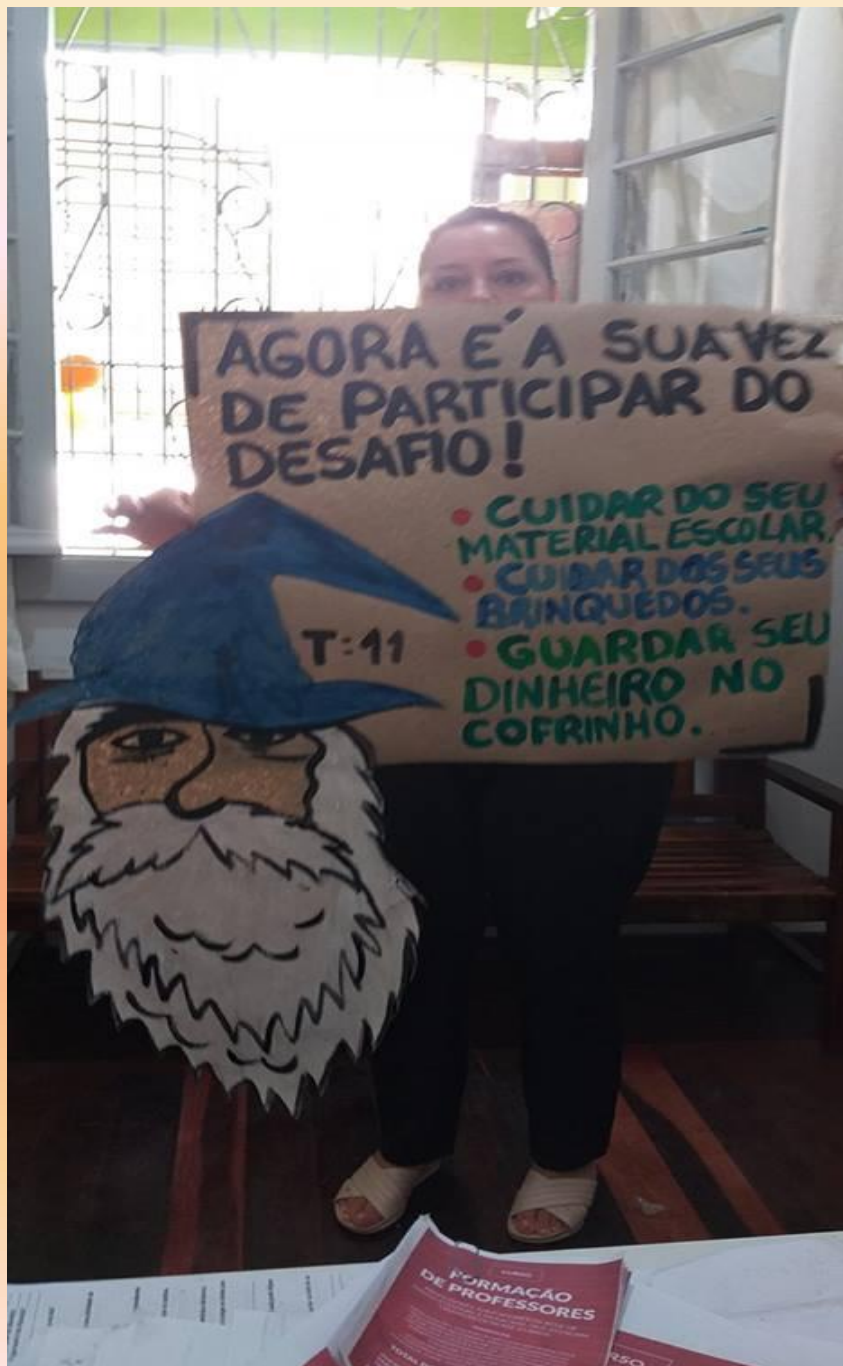 AGORA E´ A SUA VEZ
DE PARTICIPAR DO
DESAFIO!
• CUIDAR DO SEU
MATERIAL ESCOLAR.
• CUIDAR DOS SEUS
BRINQUEDOS.
T:11
• GUARDAR SEU
DINHEIRO NO
COFRINHO.
FORMAÇÃO
DE PROFESSORES